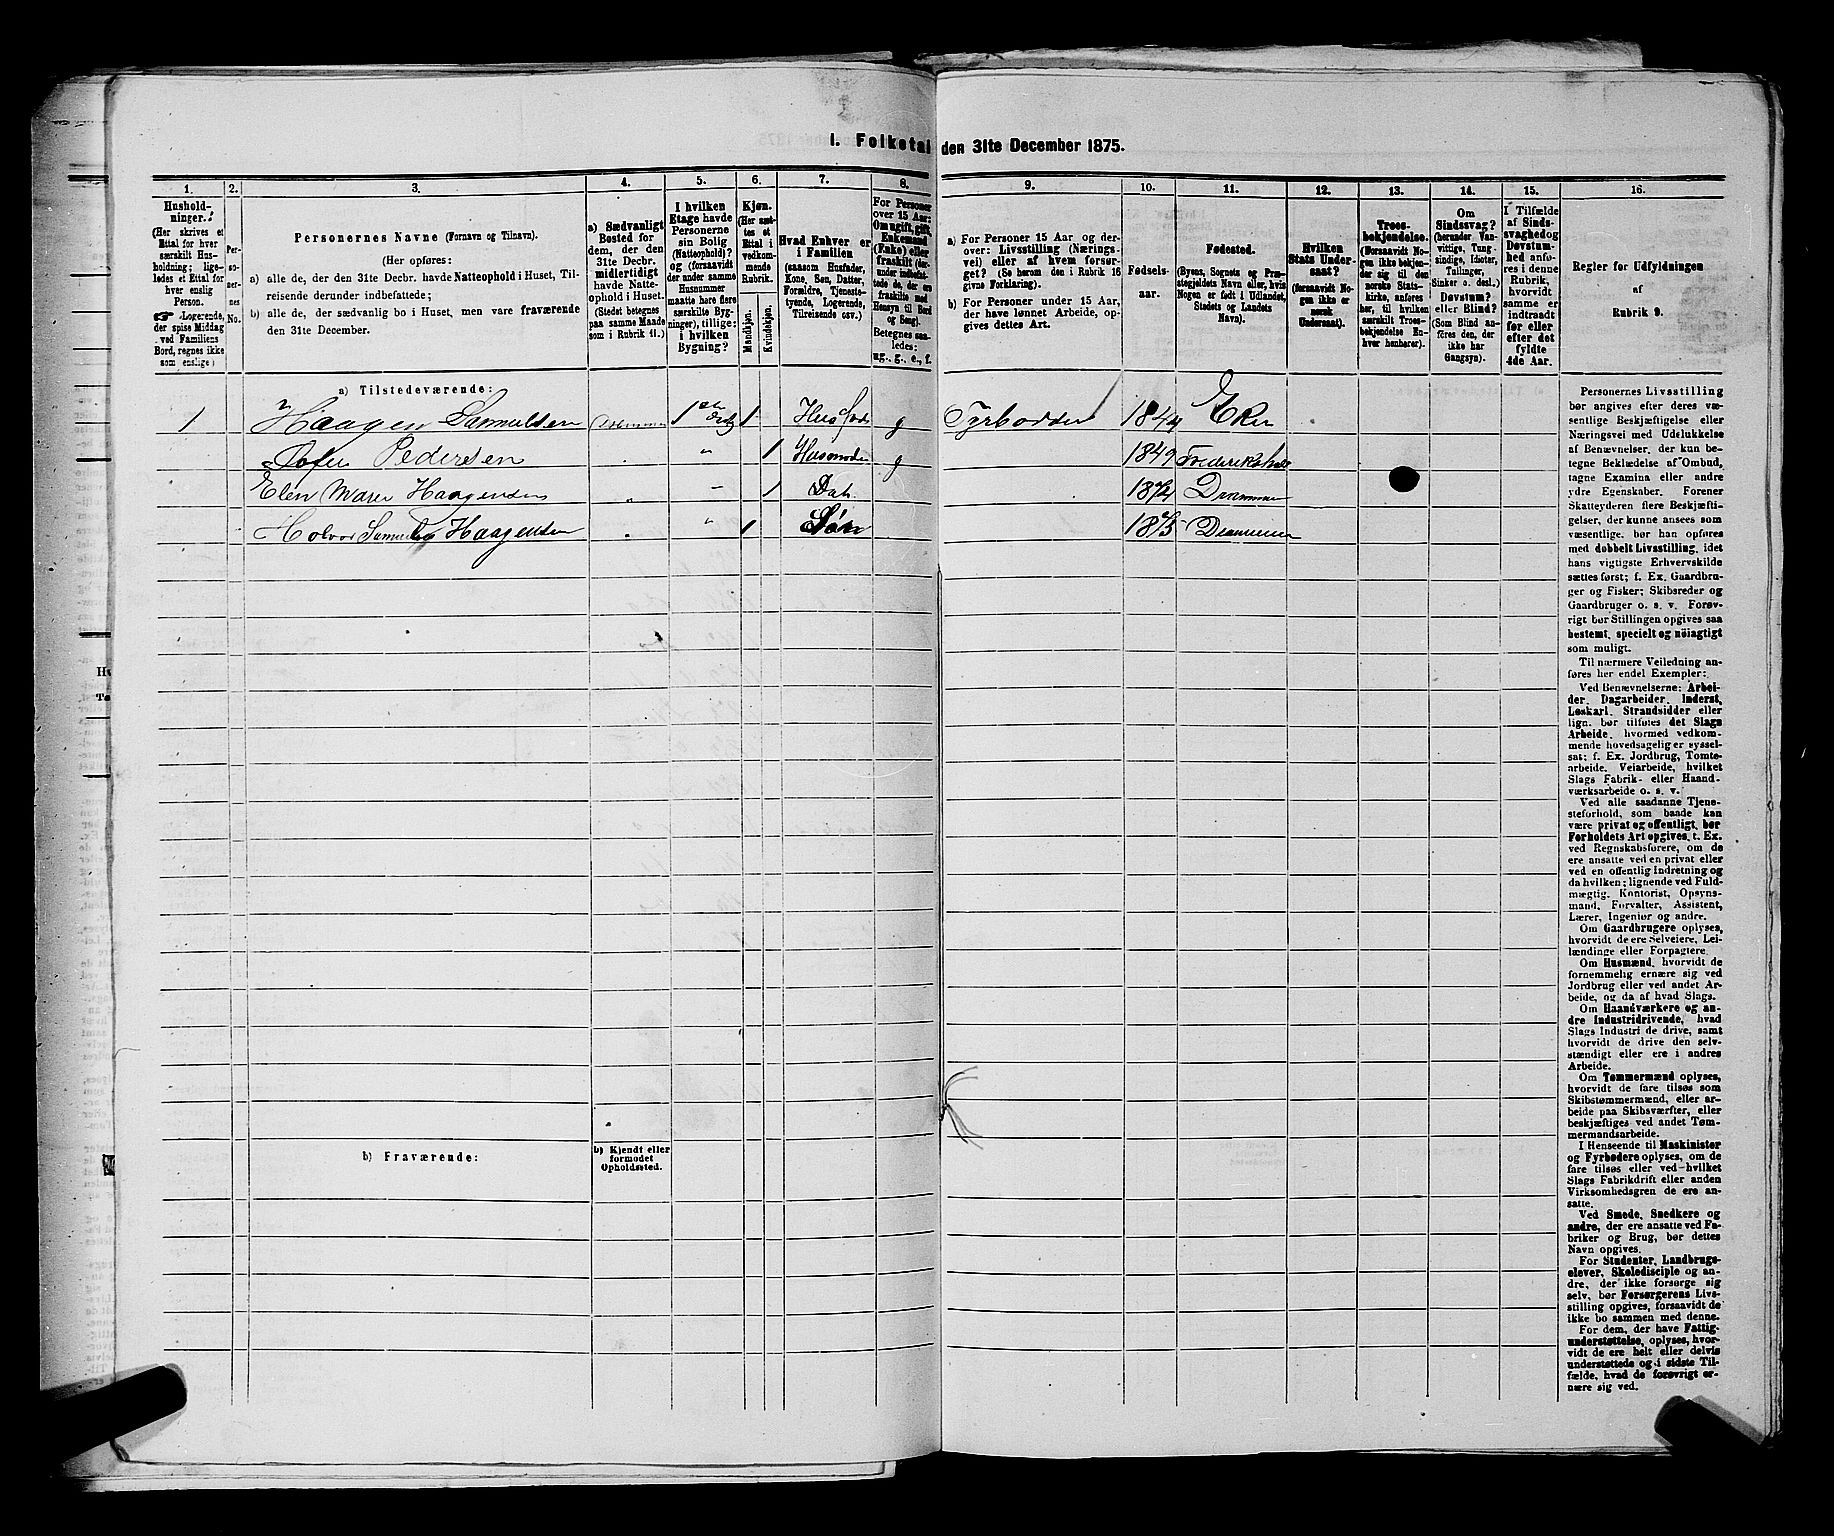 I. Folketal den 31te December 1875.
1. 2. 3. 4. 5. 6. 7. 8. 9. 10. 11. 12. 13. 14. 15. 16.
Hushold-
ninger.
(Her skrives et
Ettal for hver
særskilt Hus-
holdning; lige-
ledes et Ettal for
hver enslig
Person.
☞ Logerende,
der spise Middag
ved Familiens
Bord, regnes ikke
som enslige)
Per-
so-
ner-
nes
No.
Personernes Navne (Fornavn og Tilnavn).
(Her opføres:
a) alle de, der den 31te Decbr. havde Natteophold i Huset, Til-
reisende derunder indbefattede;
b) alle de, der sædvanlig bo i Huset, men vare fraværende
den 31te December.
a) Sædvanligt
Bosted for
dem, der den
31te Decbr.
midlertidigt
havde Natte-
ophold i Huset.
(Stedet betegnes
paa samme Maade
som i Rubrik 11.)
I hvilken
Etage havde
Personerne
sin Bolig
(Natteophold)?
og (forsaavidt
der under samme
Husnummer
maatte høre flere
særskilte Byg-
ninger), tillige:
i hvilken
Bygning?
Kjøn.
(Her sæt-
tes et
Ettal i
vedkom-
mende
Rubrik.
Mandkjøn.
Kvindekjøn.
Hvad Enhver er
i Familien
(saasom Husfader,
Kone, Søn, Datter,
Forældre, Tjeneste-
tyende, Logerende,
Tilreisende osv.)
For Personer
over 15 Aar:
Om ugift, gift,
Enkemand
(Enke) eller
fraskilt (der-
under indbefat-
tede de, der ere
fraskilte med
Hensyn til Bord
og Seng).
Betegnes saa-
ledes:
ug., g., e., f.
a) For Personer 15 Aar og der-
over: Livsstilling (Nærings-
vei) eller af hvem forsør-
get? (Se herom den i Rubrik 16
givne Forklaring).
b) For Personer under 15 Aar,
der have lønnet Arbeide, op-
gives dettes Art.
Fødsels-
aar.
Fødested.
(Byens, Sognets og Præ-
stegjeldets Navn eller, hvis
Nogen er født i Udlandet,
Stedets og Landets
Navn).
Hvilken
Stats Under-
saat?
(forsaavidt No-
gen ikke er
norsk
Undersaat).
Troes-
bekjendelse.
(Forsaavidt No-
gen ikke bekjen-
der sig til den
norske Stats-
kirke, anføres
her, til hvilken
særskilt Troes-
bekjendelse En-
hver henhører).
Om
Sindssvag?
(herunder Van-
vittige, Tung-
sindige, Idioter,
Tullinger,
Sinker o. desl.)
Døvstum?
eller Blind?
(Som Blind an-
føres den, der
ikke har
Gangsyn).
I Tilfælde
af Sinds-
svaghed og
Døvstum-
hed anfø-
res i denne
Rubrik,
hvorvidt
samme er
indtraadt
før eller
efter det
fyldte
4de Aar.
Regler for Udfyldningen
af
Rubrik 9.
a) Tilstedeværende:
1 Haagen Samuelsen Drammen 1 1 Husfader g 1844 Eker
Pedersen " 1 Husmoder g 1849 Frederikshald
Elen Marie Haagensen " 1 Dat. 1874 Drammen
Holvor Haagensen " 1 Søn 1875 Drammen
b) Fraværende:
b) Kjendt eller
formodet
Opholdssted.
Personernes Livsstilling
bør angives efter deres væ-
sentlige Beskjæftigelse eller
Næringsvei med Udelukkelse
af Benævnelser, der kun be-
tegne Beklædelse af Ombud,
tagne Examina eller andre
ydre Egenskaber. Forener
Skatteyderen flere Beskjæfti-
gelser, der kunne ansees som
væsentlige, bør han opføres
med dobbelt Livsstilling, idet
hans vigtigste Erhvervskilde
sættes først; f. Ex. Gaardbru-
ger og Fisker; Skibsreder og
Gaardbruger o. s. v. Forøv-
rigt bør Stillingen opgives saa
bestemt, specielt og nøiagtigt
som muligt.
Til nærmere Veiledning an-
føres her endel Exempler:
Ved Benævnelserne: Arbei-
der, Dagarbeider, Inderst,
Løskarl, Strandsidder eller
lign. bør tilføies det Slags
Arbeide, hvormed vedkom-
mende hovedsagelig er syssel-
sat; f. Ex. Jordbrug, Tomte-
arbeide, Veiarbeide, hvilket
Slags Fabrik- eller Haand-
værksarbeide o. s. v.
Ved alle saadanne Tjene-
steforhold, som baade kan
være privat og offentligt, bør
Forholdets Art opgives, t. Ex.
ved Regnskabsførere, om de
ere ansatte ved en privat eller
ved en offentlig Indretning og
da hvilken; lignende ved Fuld-
mægtig, Kontorist, Opsyns-
mand, Forvalter, Assistent,
Lærer, Ingeniør og andre.
Om Gaardbrugere oplyses,
hvorvidt de ere Selveiere, Lei-
lændinge eller Forpagtere.
Om Husmænd, hvorvidt de
fornemmelig ernære sig ved
Jordbrug eller ved andet Ar-
beide, og da af hvad Slags.
Om Haandværkere og an-
dre Industridrivende, hvad
Slags Industri de drive, samt
hvorvidt de drive den selv-
stændigt eller ere i andres
Arbeide.
Om Tømmermænd oplyses,
hvorvidt de fare tilsøs som
Skibstømmermænd, eller ar-
beide paa Skibsværfter, eller
beskjæftiges ved andet Tøm-
mermandsarbeide.
I Henseende til Maskinister
og Fyrbødere oplyses, om de
fare tilsøs eller ved hvilket
Slags Fabrikdrift eller anden
Virksomhedsgren de ere an-
satte.
Ved Smede, Snedkere og
andre, der ere ansatte ved Fa-
briker og Brug, bør dettes
Navn opgives.
For Studenter, Landbrugs-
elever, Skoledisciple og an-
dre, der ikke forsørge sig
selv, bør Forsørgerens Livs-
stilling opgives, forsaavidt de
ikke bo sammen med denne.
For dem, der have Fattig-
understøttelse, oplyses, hvor-
vidt de ere helt eller delvis
understøttede og i sidste Til-
fælde, hvad de forøvrigt er-
nære sig ved.